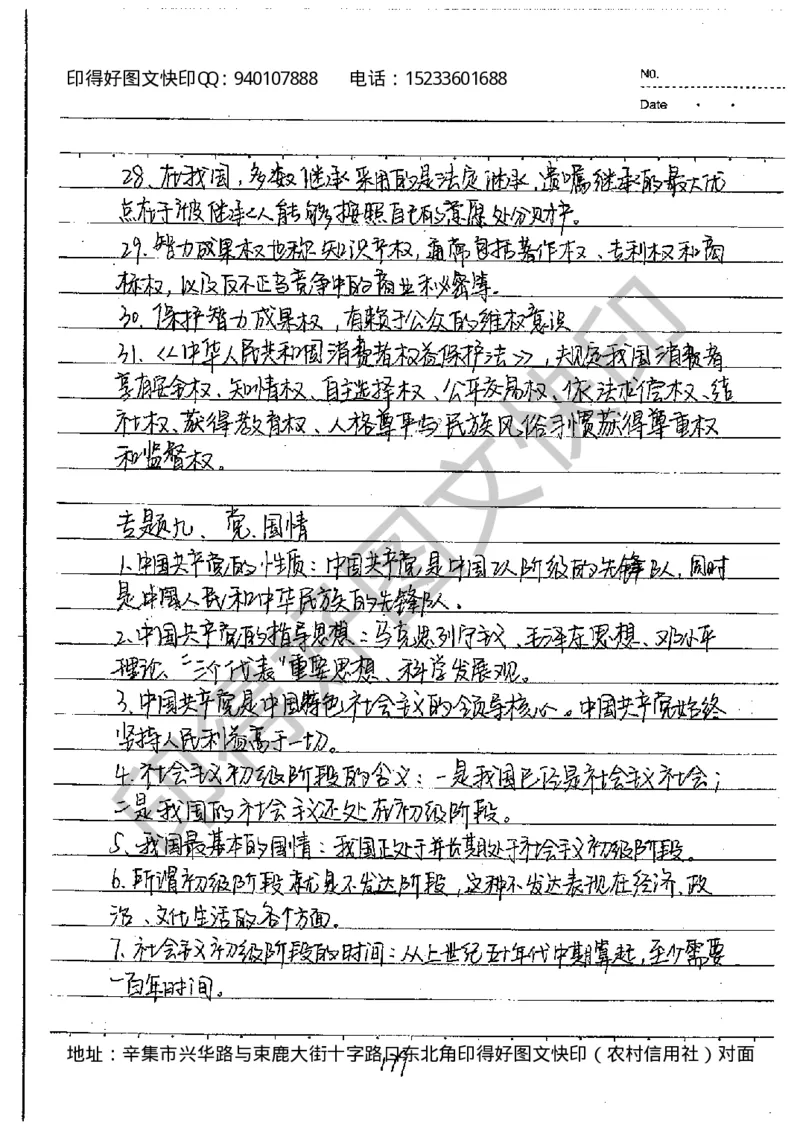 印得好图文快印QQ：940107888 电话：15233601688
No.
Date
28、在我国，多数继承采用的是法定继承，遗嘱继承的最大优
点在于被继承人能够按照自己的意愿处分财产。
29、智力成果权也称知识产权，通常包括著作权、专利权和商
标权，以及反不正当竞争中的商业秘密等。
30、保护智力成果权，有赖于公众的维权意识
31、《中华人民共和国消费者权益保护法》，规定我国消费者
享有安全权、知情权、自主选择权、公平交易权、依法求偿权、结
社权、获得教育权、人格尊严与民族风俗习惯获得尊重权
和监督权。
专题九、党、国情
1、中国共产党的性质：中国共产党是中国工人阶级的先锋队，同时
是中国人民和中华民族的先锋队。
2、中国共产党的指导思想：马克思列宁主义、毛泽东思想、邓小平
理论、“三个代表”重要思想、科学发展观。
3、中国共产党是中国特色社会主义的领导核心。中国共产党始终
坚持人民利益高于一切。
4、社会主义初级阶段的含义：一是我国已经是社会主义社会；
二是我国的社会主义还处在初级阶段。
5、我国最基本的国情：我国正处于并长期处于社会主义初级阶段。
6、所谓初级阶段就是不发达阶段，这种不发达表现在经济、政
治、文化生活的各个方面。
7、社会主义初级阶段的时间：从上世纪五十年代中期算起，至少需要
一百年时间。
地址：辛集市兴华路与束鹿大街十字路口东北角印得好图文快印（农村信用社）对面
印得好图文快印